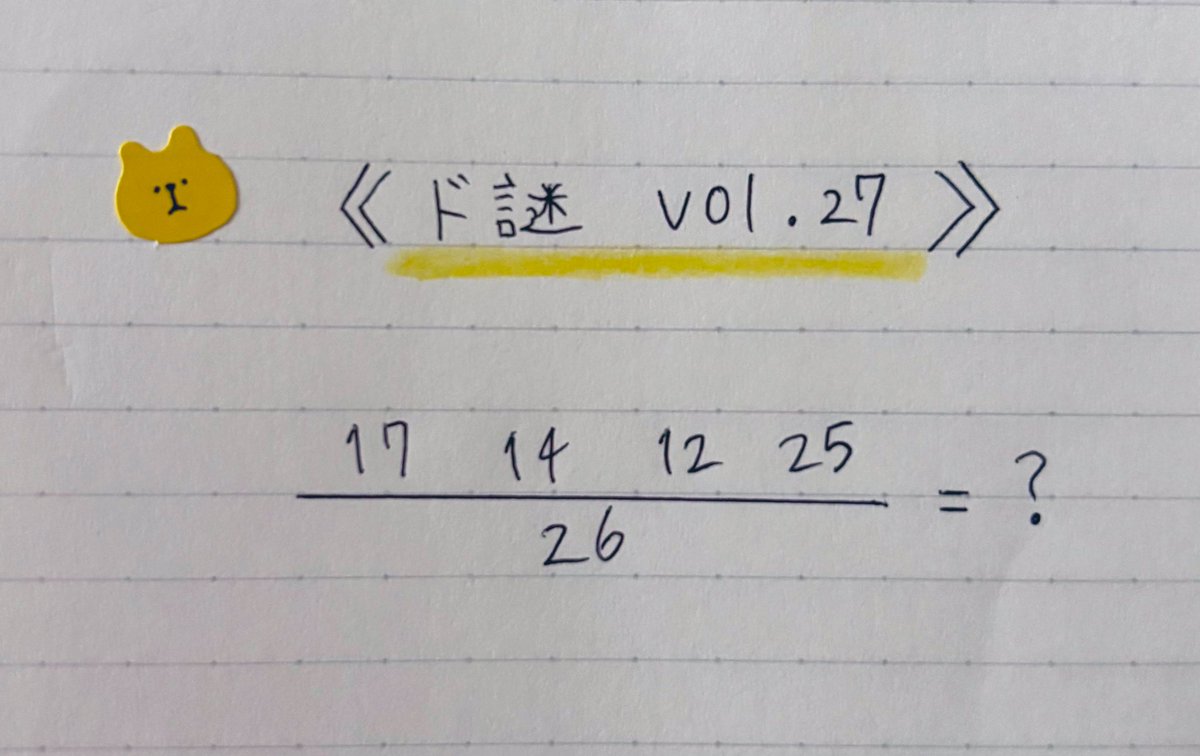 《ド謎 vol.27》
17 14 12 25
26
= ?